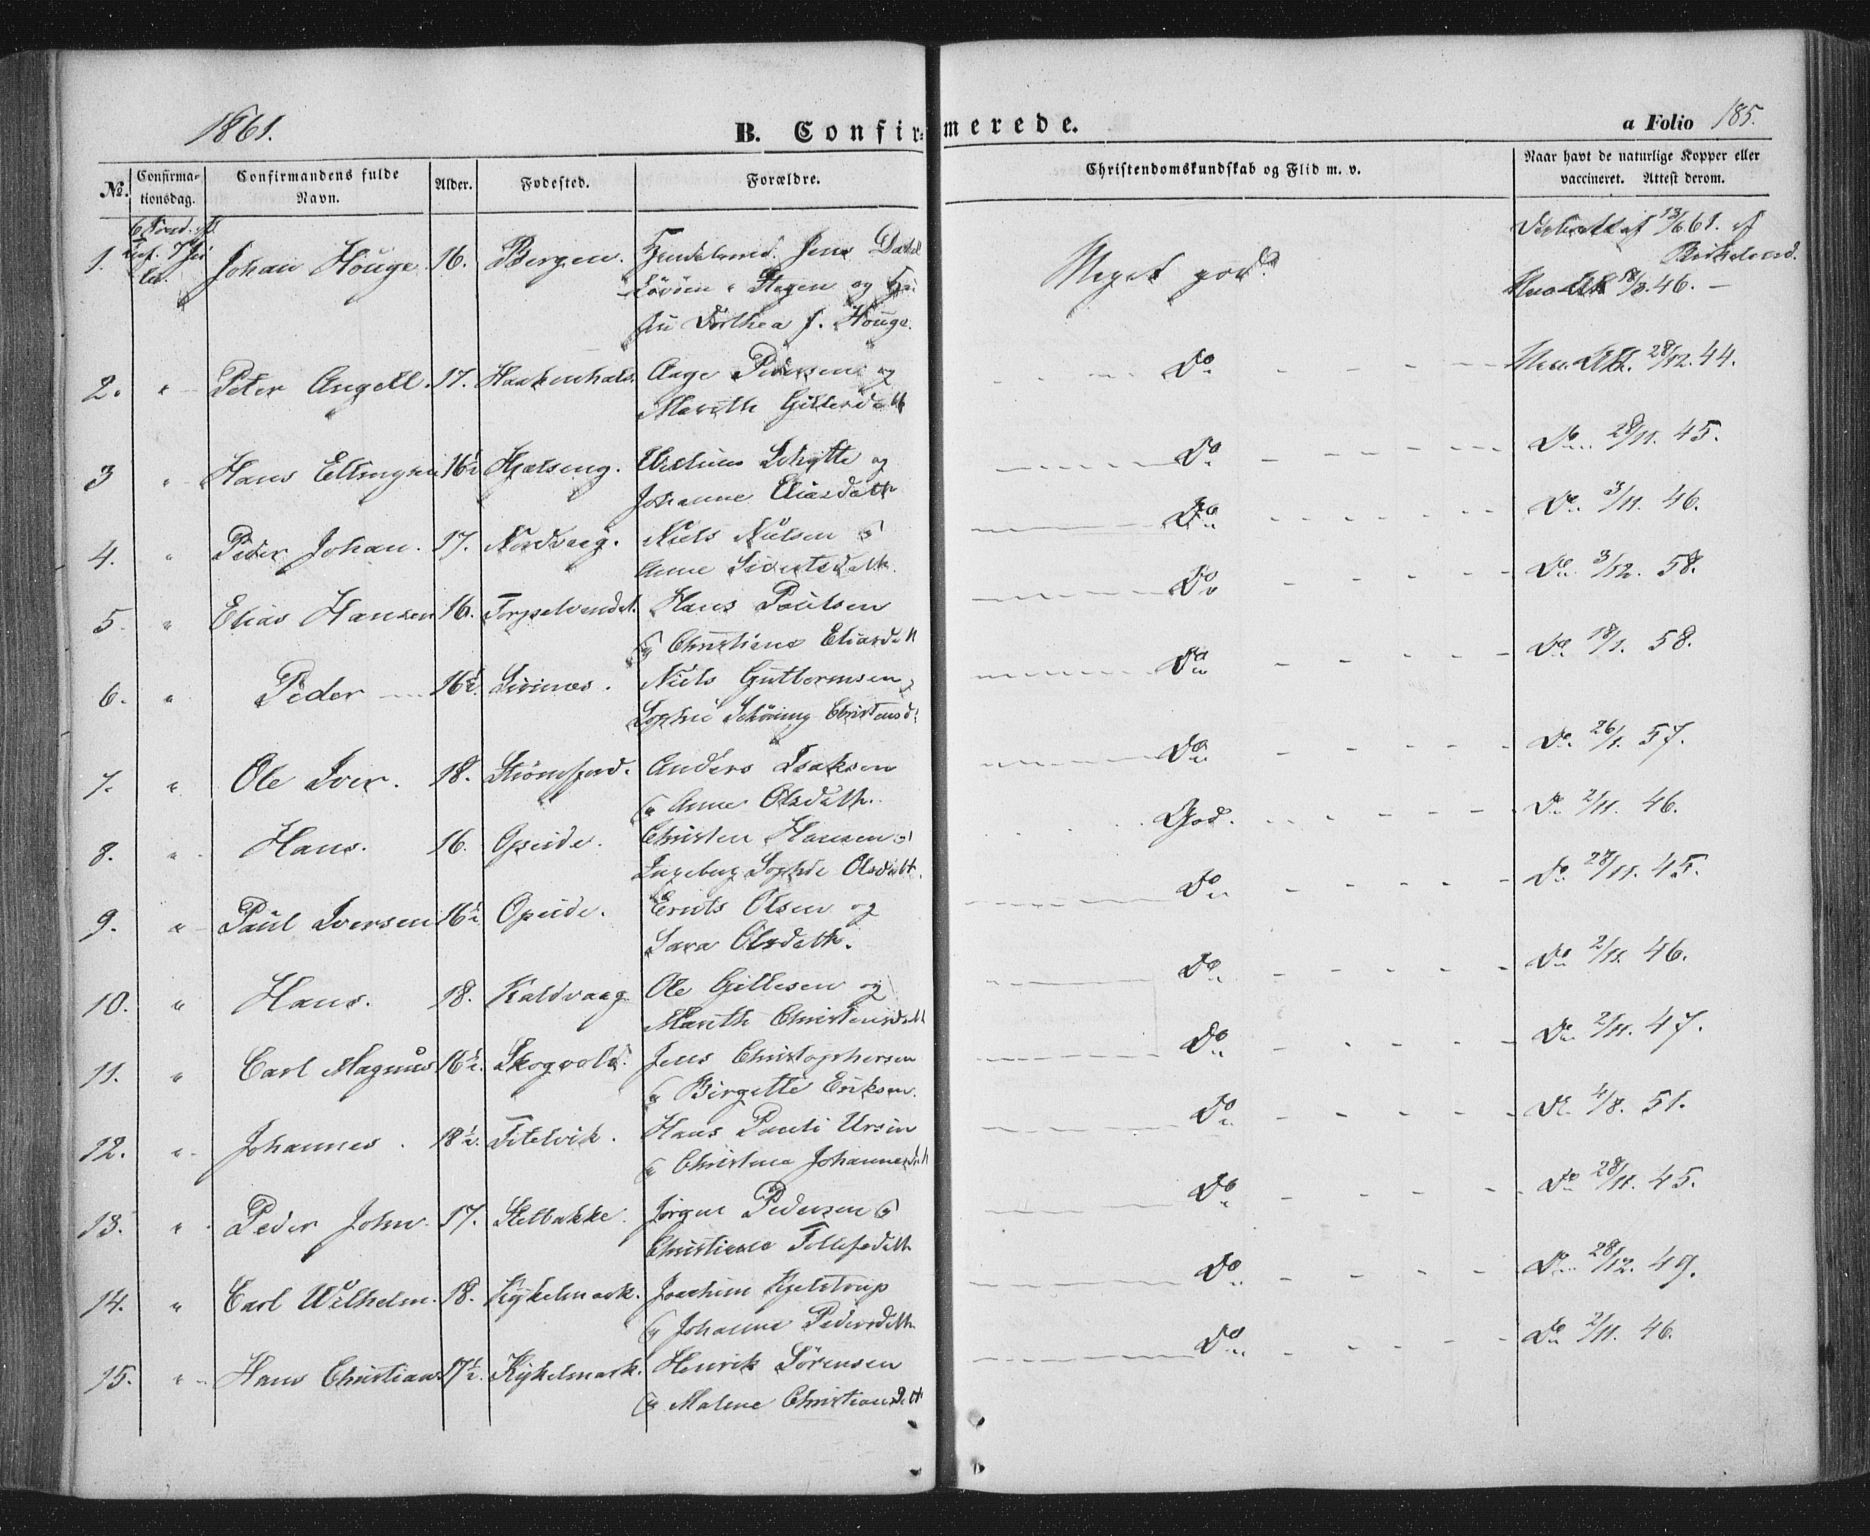 1861.
B. Confirmerede.
a Folio 185.
No. Confirmationsdag. Confirmandens fulde Navn. Alder. Fødested. Forældre. Christendomskundskab og Flid m. v. Naar havt de naturlige Kopper eller vaccineret. Attest derom.
1. Johan Houge 16. Bergen. Jens Meget god. 13/6 61. af
og
Dorthea f. Houge. 18/8. 46. –
2. " Peter Angell. 17. Haakenhals. Aage Pedersen og Do 28/12. 44.
Mareth
3 " Hans Ellingsen 16½ Schytte og Do Do 28/11. 45.
Johanne Eliasdatt
4. " Peder Johan. 17. Nordvaag. Niels Nielsen og Do Do 3/11. 46.
Anne Sivertsdatt.
5. " Elias Hansen 16. Hans Poulsen Do Do 3/12. 58.
og Christiane Eliasdatt
6. " Peder 16½. Niels Guttormsen Do Do 18/1. 58.
Sophie Schöning Christensd.
7. " Ole Iver. 18. Anders Isaksen Do Do 26/1. 57.
og Anne Olsdatt.
8. " Hans. 16. Opeide. Christen Hansen og God. Do 2/11. 46.
Ingeborg Sophie Olsdatt.
9. " Paul Iversen 16½ Opeide. Olsen og Do Do 28/11. 45.
Sara Olsdatt.
10. " Hans. 18. Kaldvaag Ole Gillesen og Do Do 2/11. 46.
Mareth Christensdatt
11. " Carl Magnus 16½. Skogvold. Jens Christophersen Do Do 2/11. 47.
og Birgitte Eriksen.
12. " Johannes. 18½. Hans Pauli Ursin Do Do 4/8. 51.
og Christina Johannesdatt
13. " Peder John. 17. Stelbakke. Jørgen Pedersen og Do Do 28/11. 45.
Christiane Tollefsdatt
14. " Carl Wilhelm. 18. Kykelmark. Joachim Kjelstrup Do Do 28/12. 49.
og Johanna Pedersdatt
15. " Hans Christian 17½. Kykelmark. Henrik Sørensen Do Do 2/11. 46.
og Malene Christiansdatt